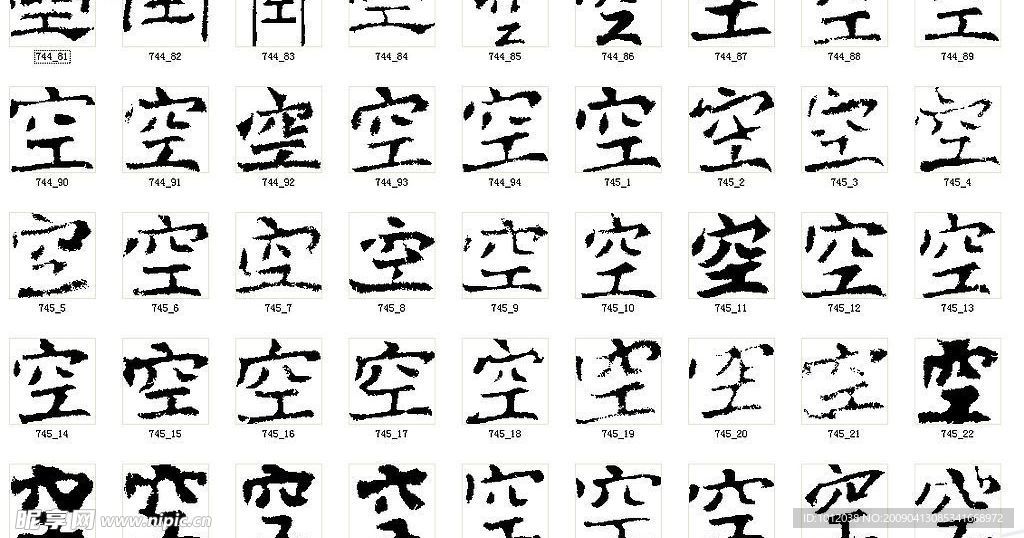 空 空 空 空 空 空 空 空 空
744_81 744_82 744_83 744_84 744_85 744_86 744_87 744_88 744_89
空 空 空 空 空 空 空 空 空
744_90 744_91 744_92 744_93 744_94 745_1 745_2 745_3 745_4
空 空 空 空 空 空 空 空 空
745_5 745_6 745_7 745_8 745_9 745_10 745_11 745_12 745_13
空 空 空 空 空 空 空 空 空
745_14 745_15 745_16 745_17 745_18 745_19 745_20 745_21 745_22
空 空 空 空 空 空 空 空 空
昵享网 www.nipic.cn
ID:1012039 NO:20090413085341668972